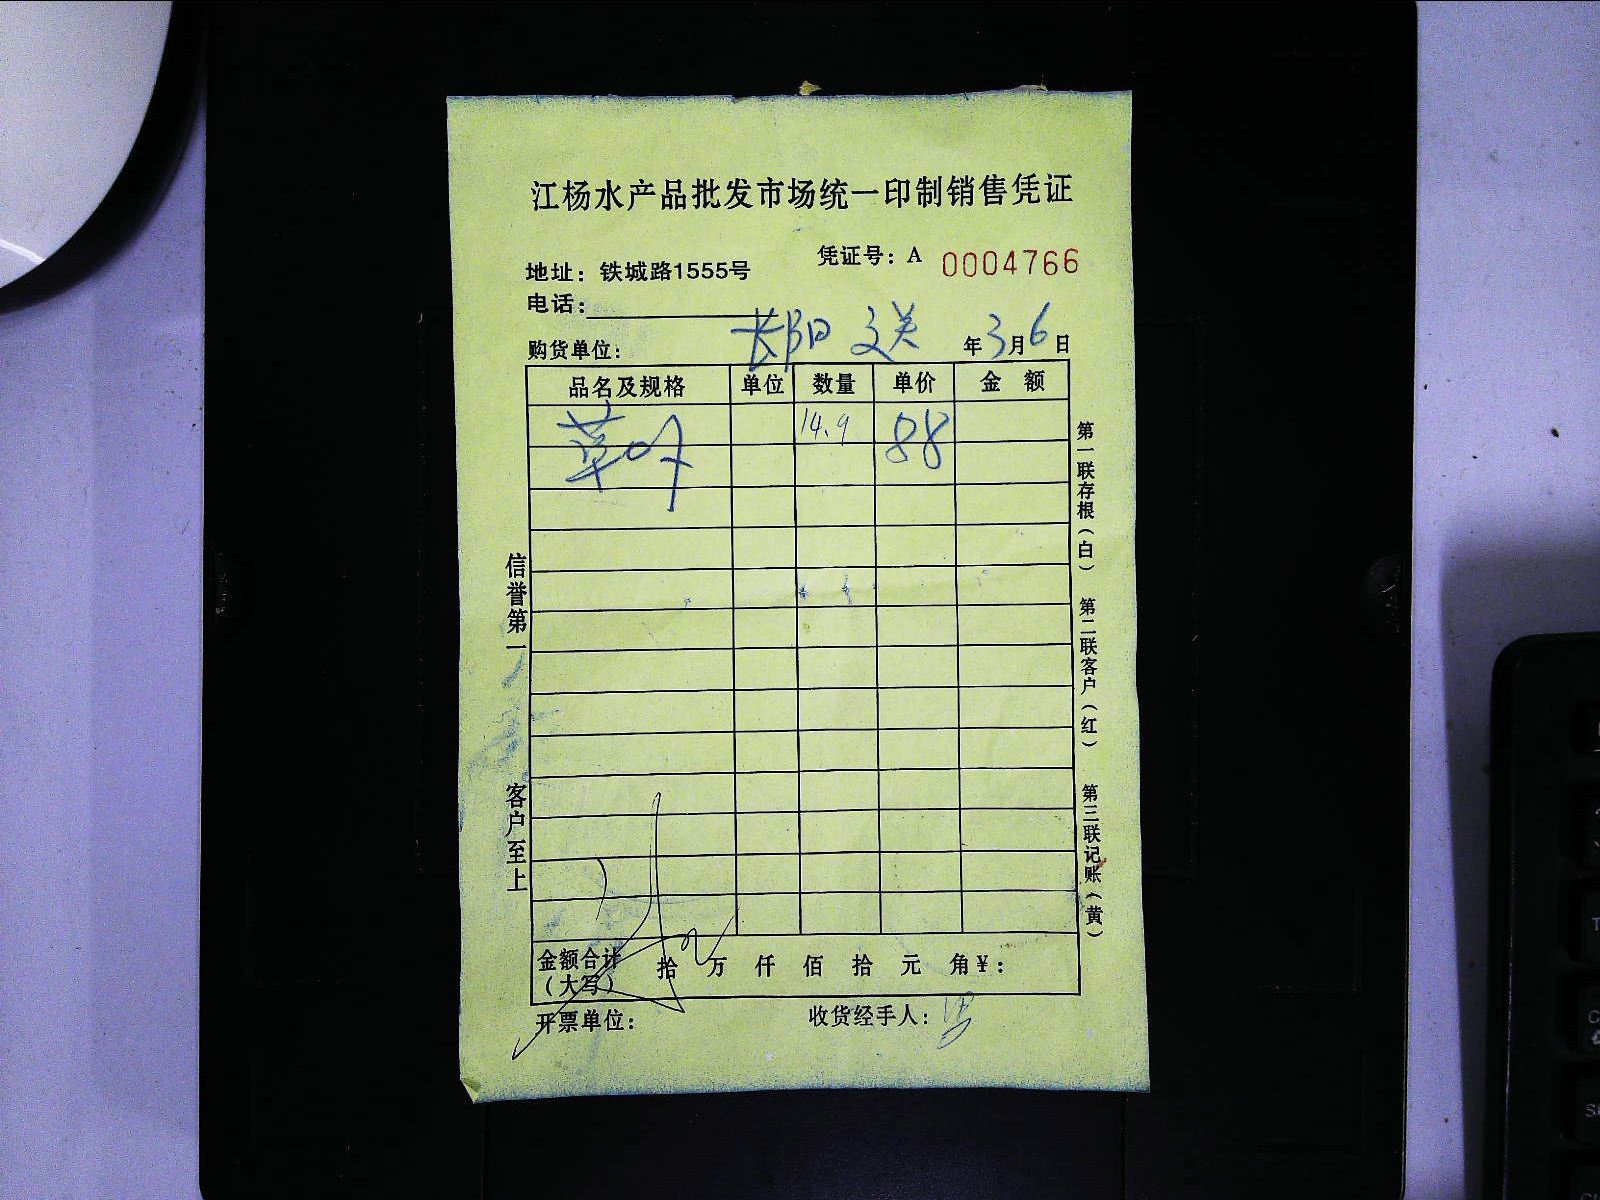 江杨水产品批发市场统一印制销售凭证
凭证号：A 0004766
地址：铁城路1555号
电话：
购货单位： 长阳 文关 年3月6日
品名及规格 单位 数量 单价 金 额
草 14.9 88
第一联存根（白） 第二联客户（红） 第三联记账（黄）
信誉第一 客户至上
金额合计（大写） 拾 万 仟 佰 拾 元 角¥：
开票单位： 收货经手人：